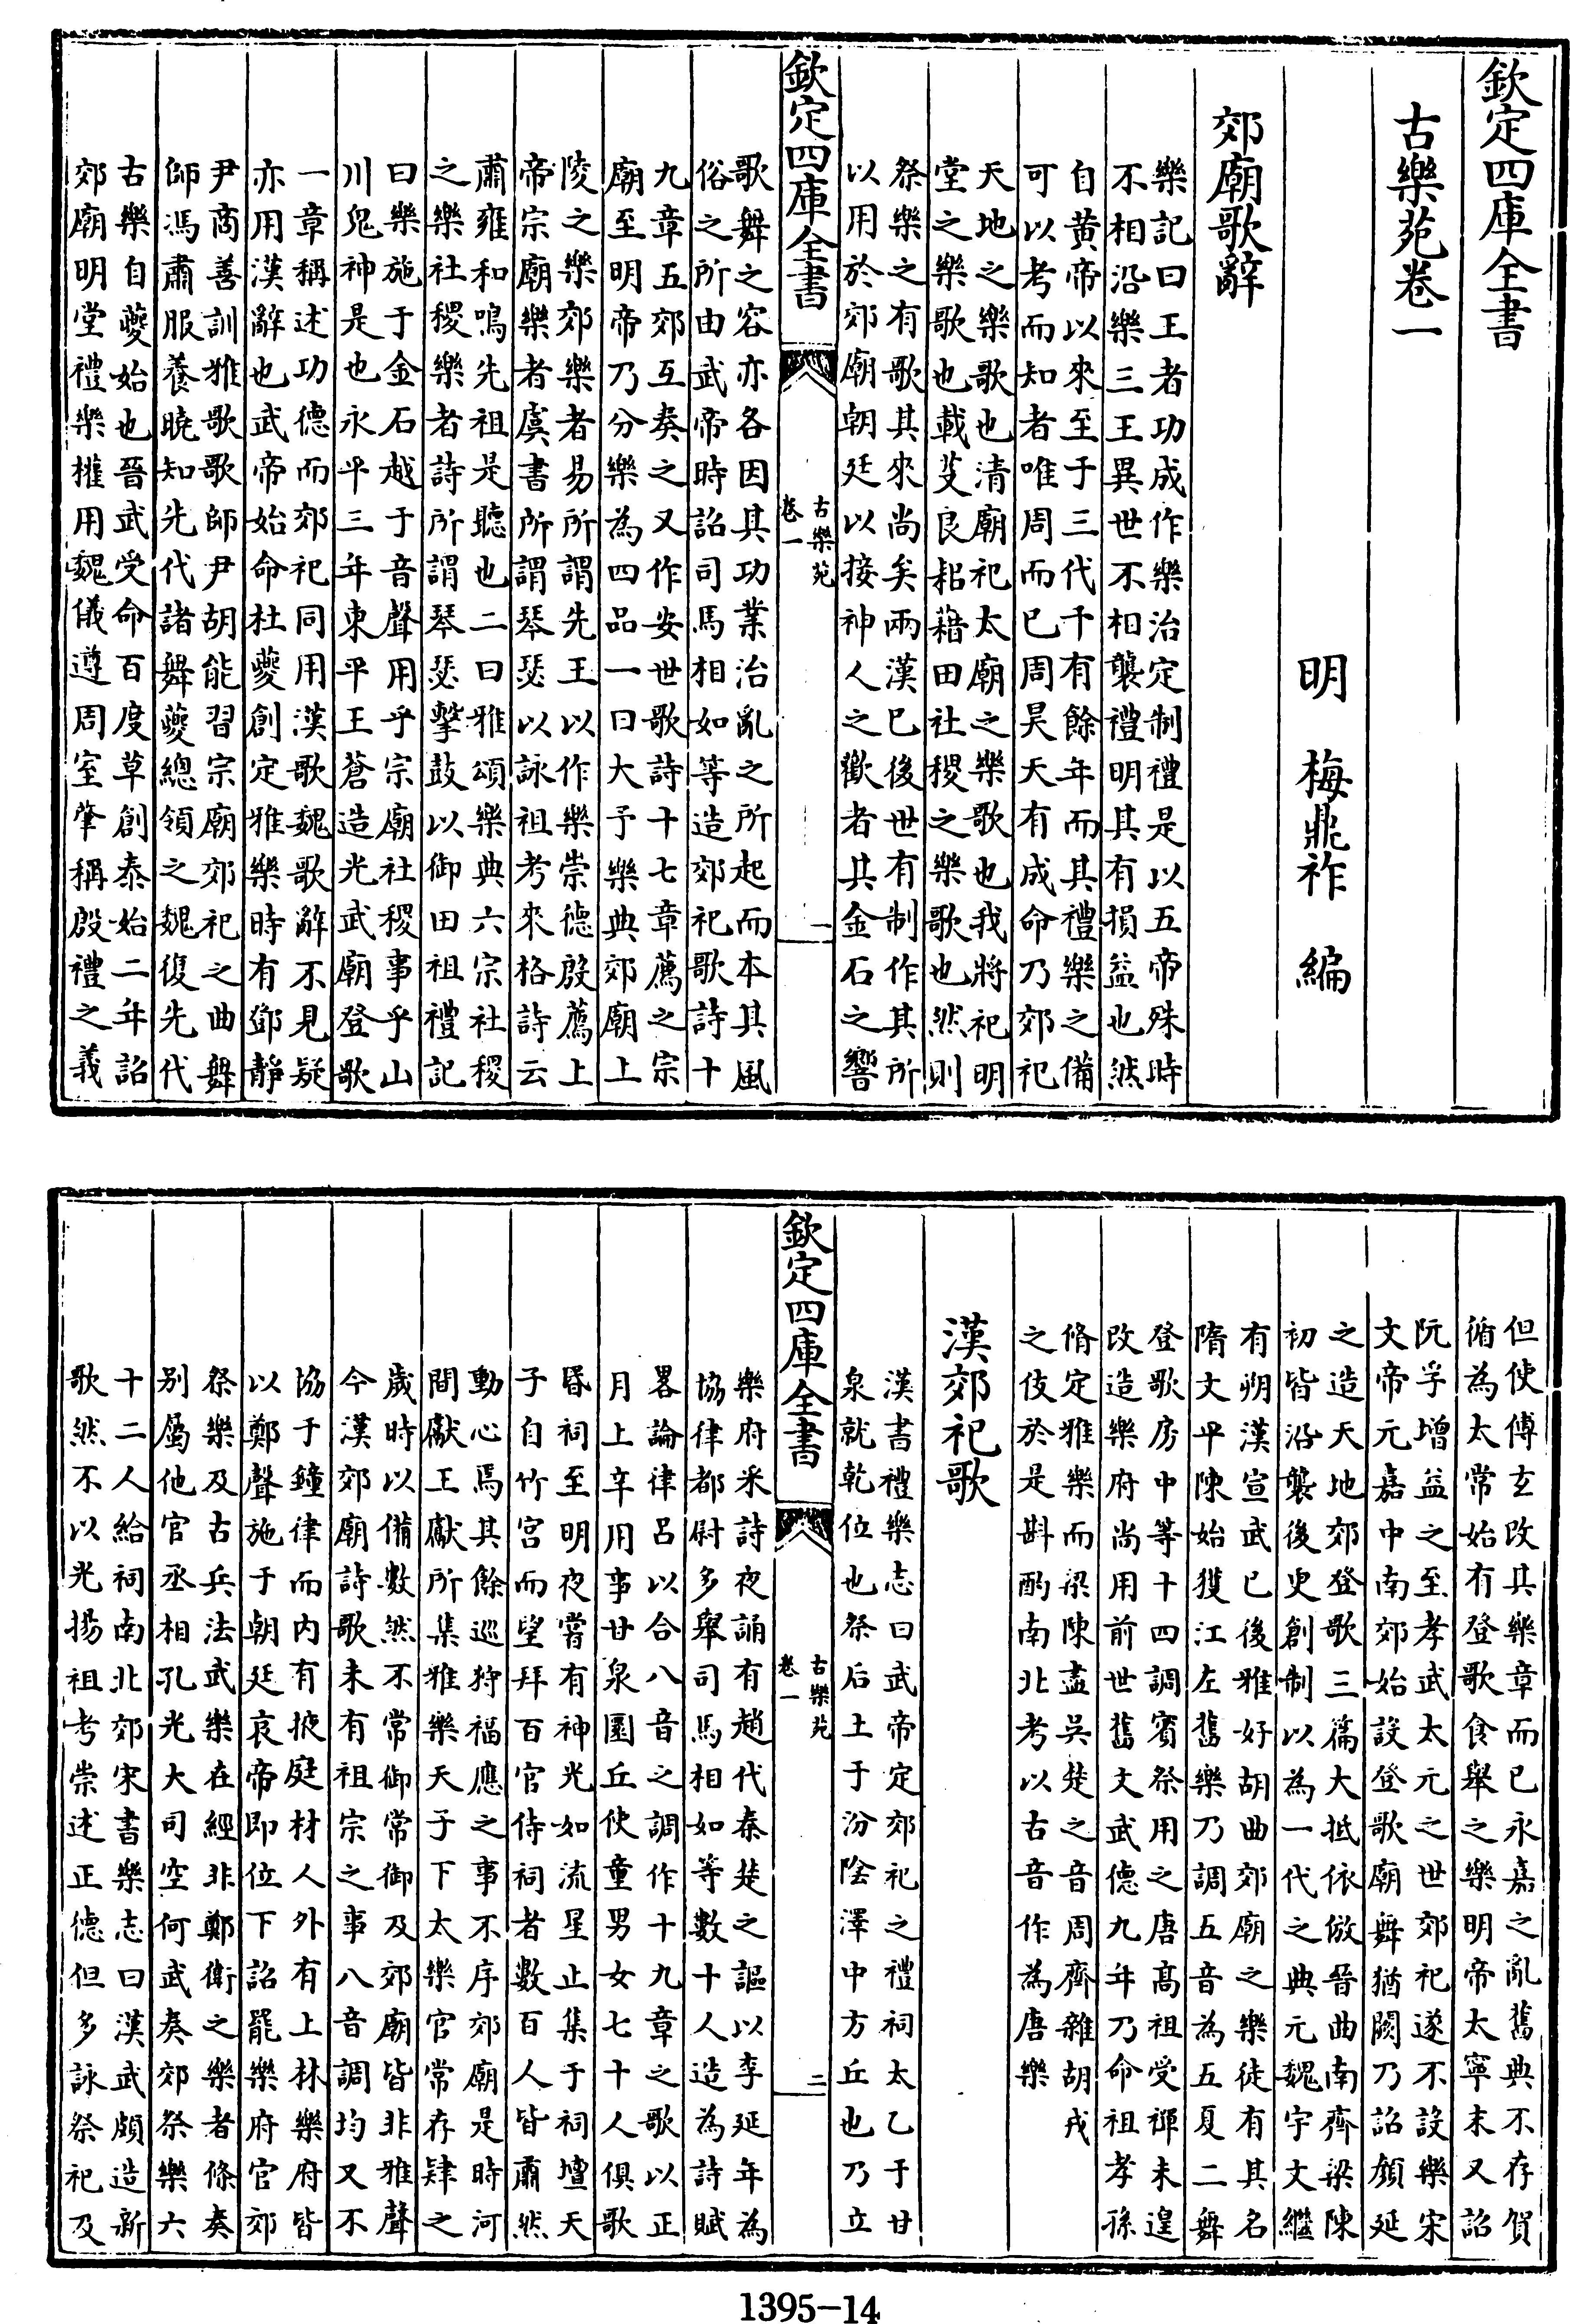 欽定四庫全書
古樂苑卷一
明 梅鼎祚 編
郊廟歌辭
樂記曰王者功成作樂治定制禮是以五帝殊時
不相沿樂三王異世不相襲禮明其有損益也然
自黄帝以來至于三代千有餘年而其禮樂之備
可以考而知者唯周而已周昊天有成命乃郊祀
天地之樂歌也清廟祀太廟之樂歌也我將祀明
堂之樂歌也載芟良耜藉田社稷之樂歌也然則
祭樂之有歌其來尚矣兩漢已後世有制作其所
以用於郊廟朝廷以接神人之歡者其金石之響
欽定四庫全書
古樂苑
卷一
一
歌舞之容亦各因其功業治亂之所起而本其風
俗之所由武帝時詔司馬相如等造郊祀歌詩十
九章五郊互奏之又作安世歌詩十七章薦之宗
廟至明帝乃分樂為四品一曰大予樂典郊廟上
陵之樂郊樂者易所謂先王以作樂崇德殷薦上
帝宗廟樂者虞書所謂琴瑟以詠祖考來格詩云
肅雍和鳴先祖是聽也二曰雅頌樂典六宗社稷
之樂社稷樂者詩所謂琴瑟擊鼓以御田祖禮記
曰樂施于金石越于音聲用乎宗廟社稷事乎山
川鬼神是也永平三年東平王蒼造光武廟登歌
一章稱述功德而郊祀同用漢歌魏歌辭不見疑
亦用漢辭也武帝始命杜夔創定雅樂時有鄧靜
尹商善訓雅歌歌師尹胡能習宗廟郊祀之曲舞
師馮肅服養曉知先代諸舞夔總領之魏復先代
古樂自夔始也晉武受命百度草創泰始二年詔
郊廟明堂禮樂權用魏儀遵周室肇稱殷禮之義
但使傅玄改其樂章而已永嘉之亂舊典不存賀
循為太常始有登歌食舉之樂明帝太寧末又詔
阮孚增益之至孝武太元之世郊祀遂不設樂宋
文帝元嘉中南郊始設登歌廟舞猶闕乃詔顏延
之造天地郊登歌三篇大抵依倣晉曲南齊梁陳
初皆沿襲後更創制以為一代之典元魏宇文繼
有朔漠宣武已後雅好胡曲郊廟之樂徒有其名
隋文平陳始獲江左舊樂乃調五音為五夏二舞
登歌房中等十四調賓祭用之唐髙祖受禪未遑
改造樂府尚用前世舊文武德九年乃命祖孝孫
脩定雅樂而梁陳盡吳楚之音周齊雜胡戎
之伎於是斟酌南北考以古音作為唐樂
漢郊祀歌
漢書禮樂志曰武帝定郊祀之禮祠太乙于甘
泉就乾位也祭后土于汾陰澤中方丘也乃立
欽定四庫全書
古樂苑
卷一
二
樂府采詩夜誦有趙代秦楚之謳以李延年為
協律都尉多舉司馬相如等數十人造為詩賦
畧論律呂以合八音之調作十九章之歌以正
月上辛用事甘泉圜丘使童男女七十人俱歌
昏祠至明夜嘗有神光如流星止集于祠壇天
子自竹宫而望拜百官侍祠者數百人皆肅然
動心焉其餘巡狩福應之事不序郊廟是時河
間獻王獻所集雅樂天子下太樂官常存肄之
歲時以備數然不常御常御及郊廟皆非雅聲
今漢郊廟詩歌未有祖宗之事八音調均又不
協于鐘律而内有掖庭材人外有上林樂府皆
以鄭聲施于朝廷哀帝即位下詔罷樂府官郊
祭樂及古兵法武樂在經非鄭衛之樂者條奏
别屬他官丞相孔光大司空何武奏郊祭樂六
十二人給祠南北郊宋書樂志曰漢武頗造新
歌然不以光揚祖考崇述正德但多詠祭祀及
1395-14